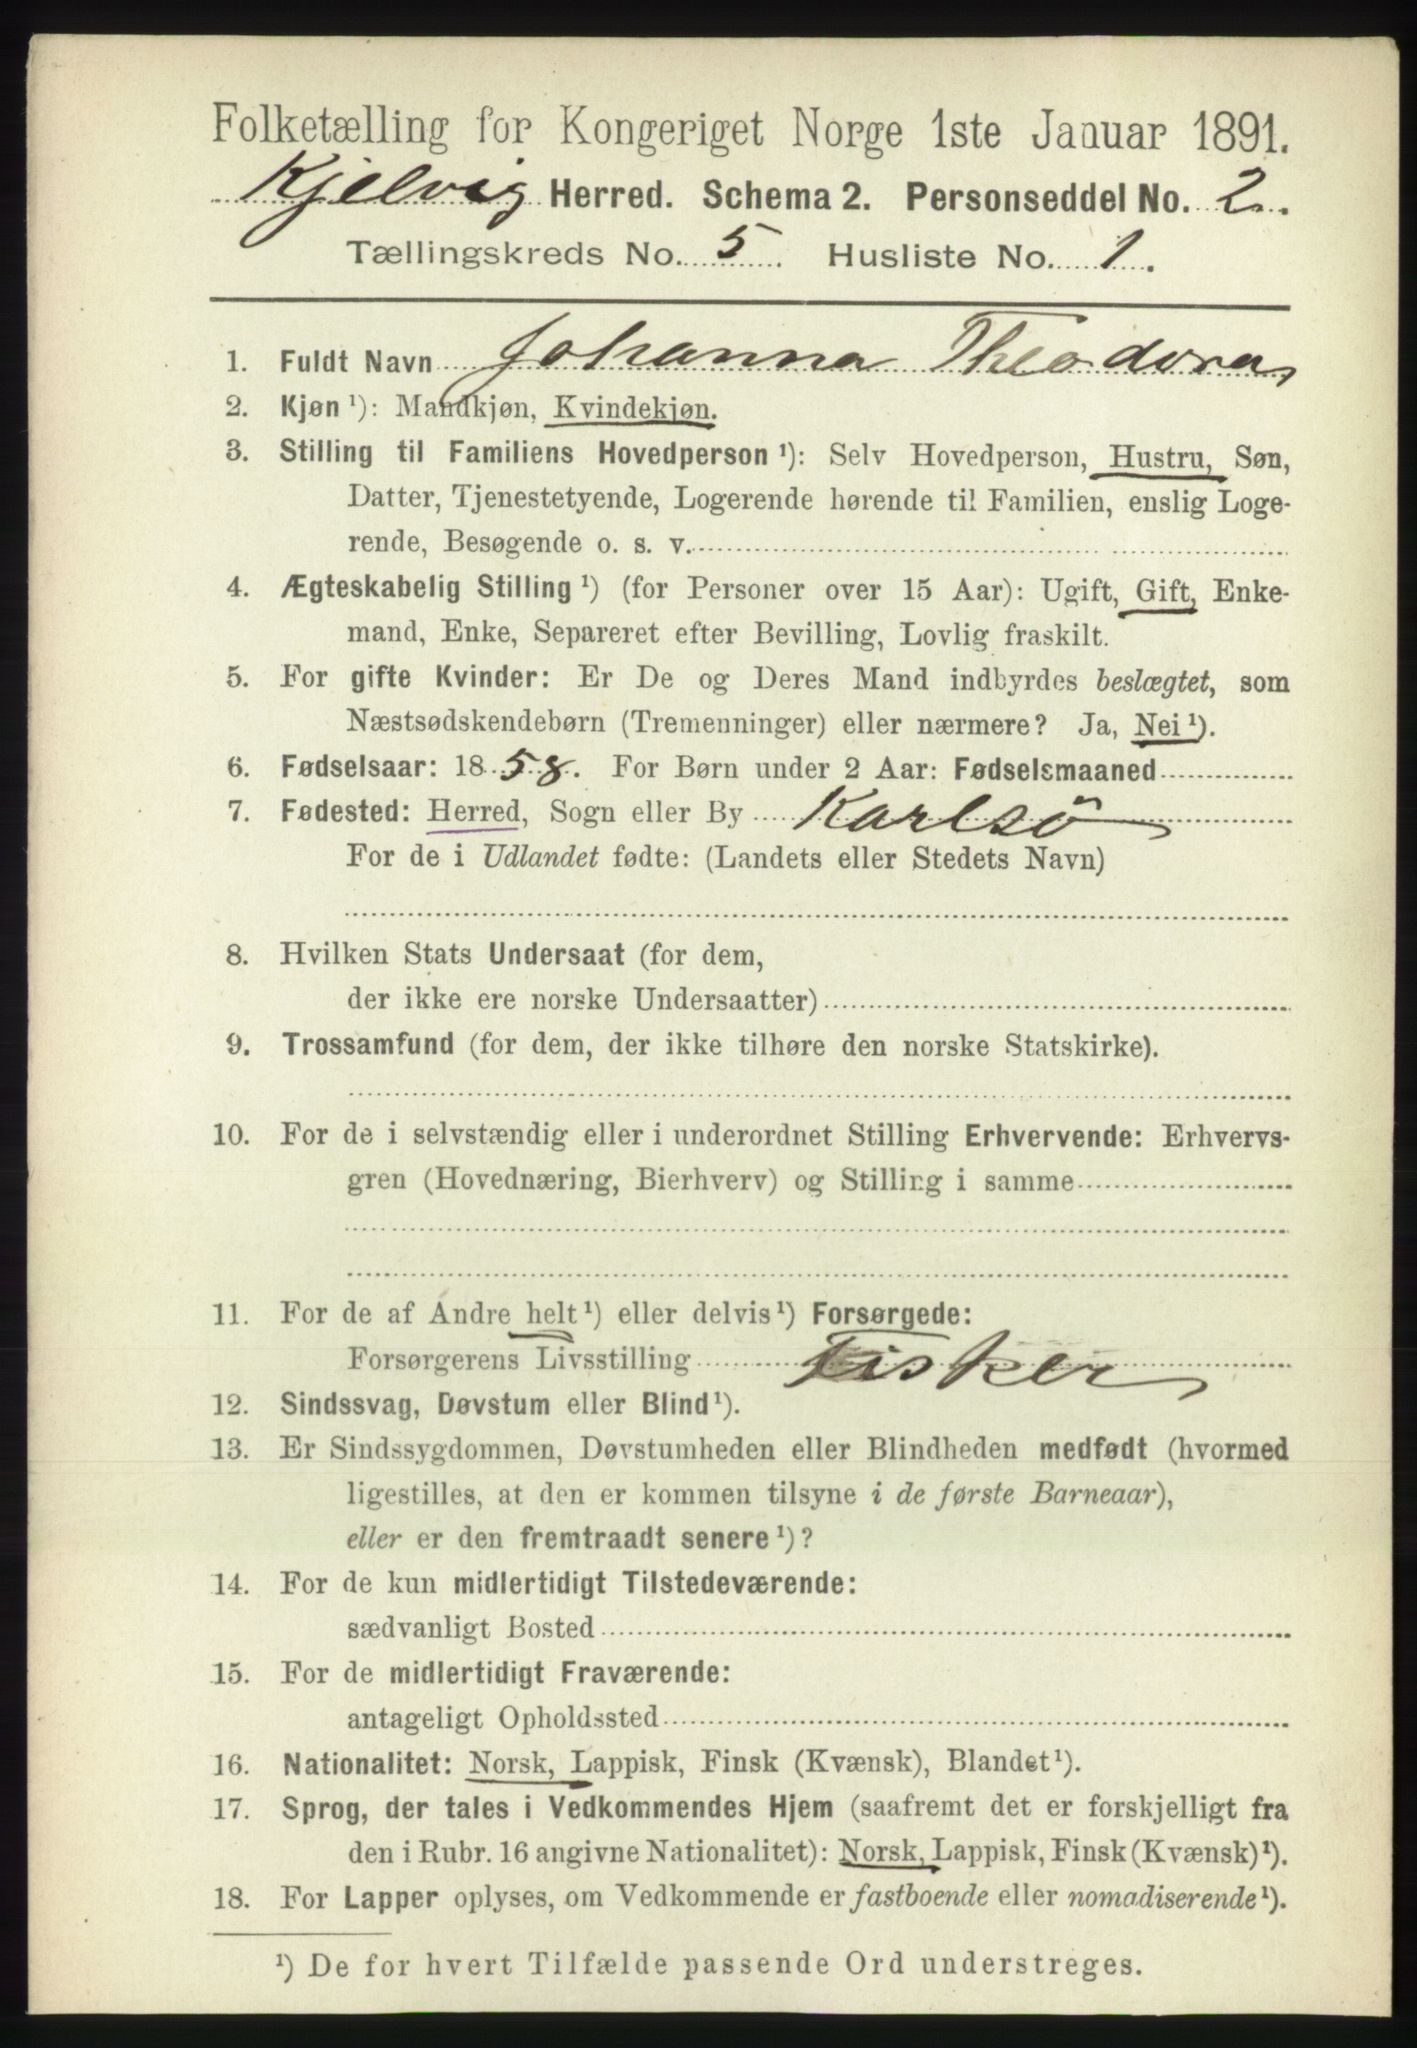 Folketælling for Kongeriget Norge 1ste Januar 1891.
Kjelvig Herred. Schema 2. Personseddel No. 2.
Tællingskreds No. 5. Husliste No. 1.
1. Fuldt Navn Johanna Theodora
2. Kjøn ¹): Mandkjøn, Kvindekjøn.
3. Stilling til Familiens Hovedperson ¹): Selv Hovedperson, Hustru, Søn,
Datter, Tjenestetyende, Logerende hørende til Familien, enslig Loge-
rende, Besøgende o. s. v.
4. Ægteskabelig Stilling ¹) (for Personer over 15 Aar): Ugift, Gift, Enke-
mand, Enke, Separeret efter Bevilling, Lovlig fraskilt.
5. For gifte Kvinder: Er De og Deres Mand indbyrdes beslægtet, som
Næstsødskendebørn (Tremenninger) eller nærmere? Ja, Nei ¹).
6. Fødselsaar: 1858. For Børn under 2 Aar: Fødselsmaaned
7. Fødested: Herred, Sogn eller By Karlsö
For de i Udlandet fødte: (Landets eller Stedets Navn)
8. Hvilken Stats Undersaat (for dem,
der ikke ere norske Undersaatter)
9. Trossamfund (for dem, der ikke tilhøre den norske Statskirke).
10. For de i selvstændig eller i underordnet Stilling Erhvervende: Erhvervs-
gren (Hovednæring, Bierhverv) og Stilling i samme
11. For de af Andre helt ¹) eller delvis ¹) Forsørgede:
Forsørgerens Livsstilling Fisker
12. Sindssvag, Døvstum eller Blind ¹).
13. Er Sindssygdommen, Døvstumheden eller Blindheden medfødt (hvormed
ligestilles, at den er kommen tilsyne i de første Barneaar),
eller er den fremtraadt senere ¹)?
14. For de kun midlertidigt Tilstedeværende:
sædvanligt Bosted
15. For de midlertidigt Fraværende:
antageligt Opholdssted
16. Nationalitet: Norsk, Lappisk, Finsk (Kvænsk), Blandet ¹).
17. Sprog, der tales i Vedkommendes Hjem (saafremt det er forskjelligt fra
den i Rubr. 16 angivne Nationalitet): Norsk, Lappisk, Finsk (Kvænsk) ¹).
18. For Lapper oplyses, om Vedkommende er fastboende eller nomadiserende ¹).
¹) De for hvert Tilfælde passende Ord understreges.